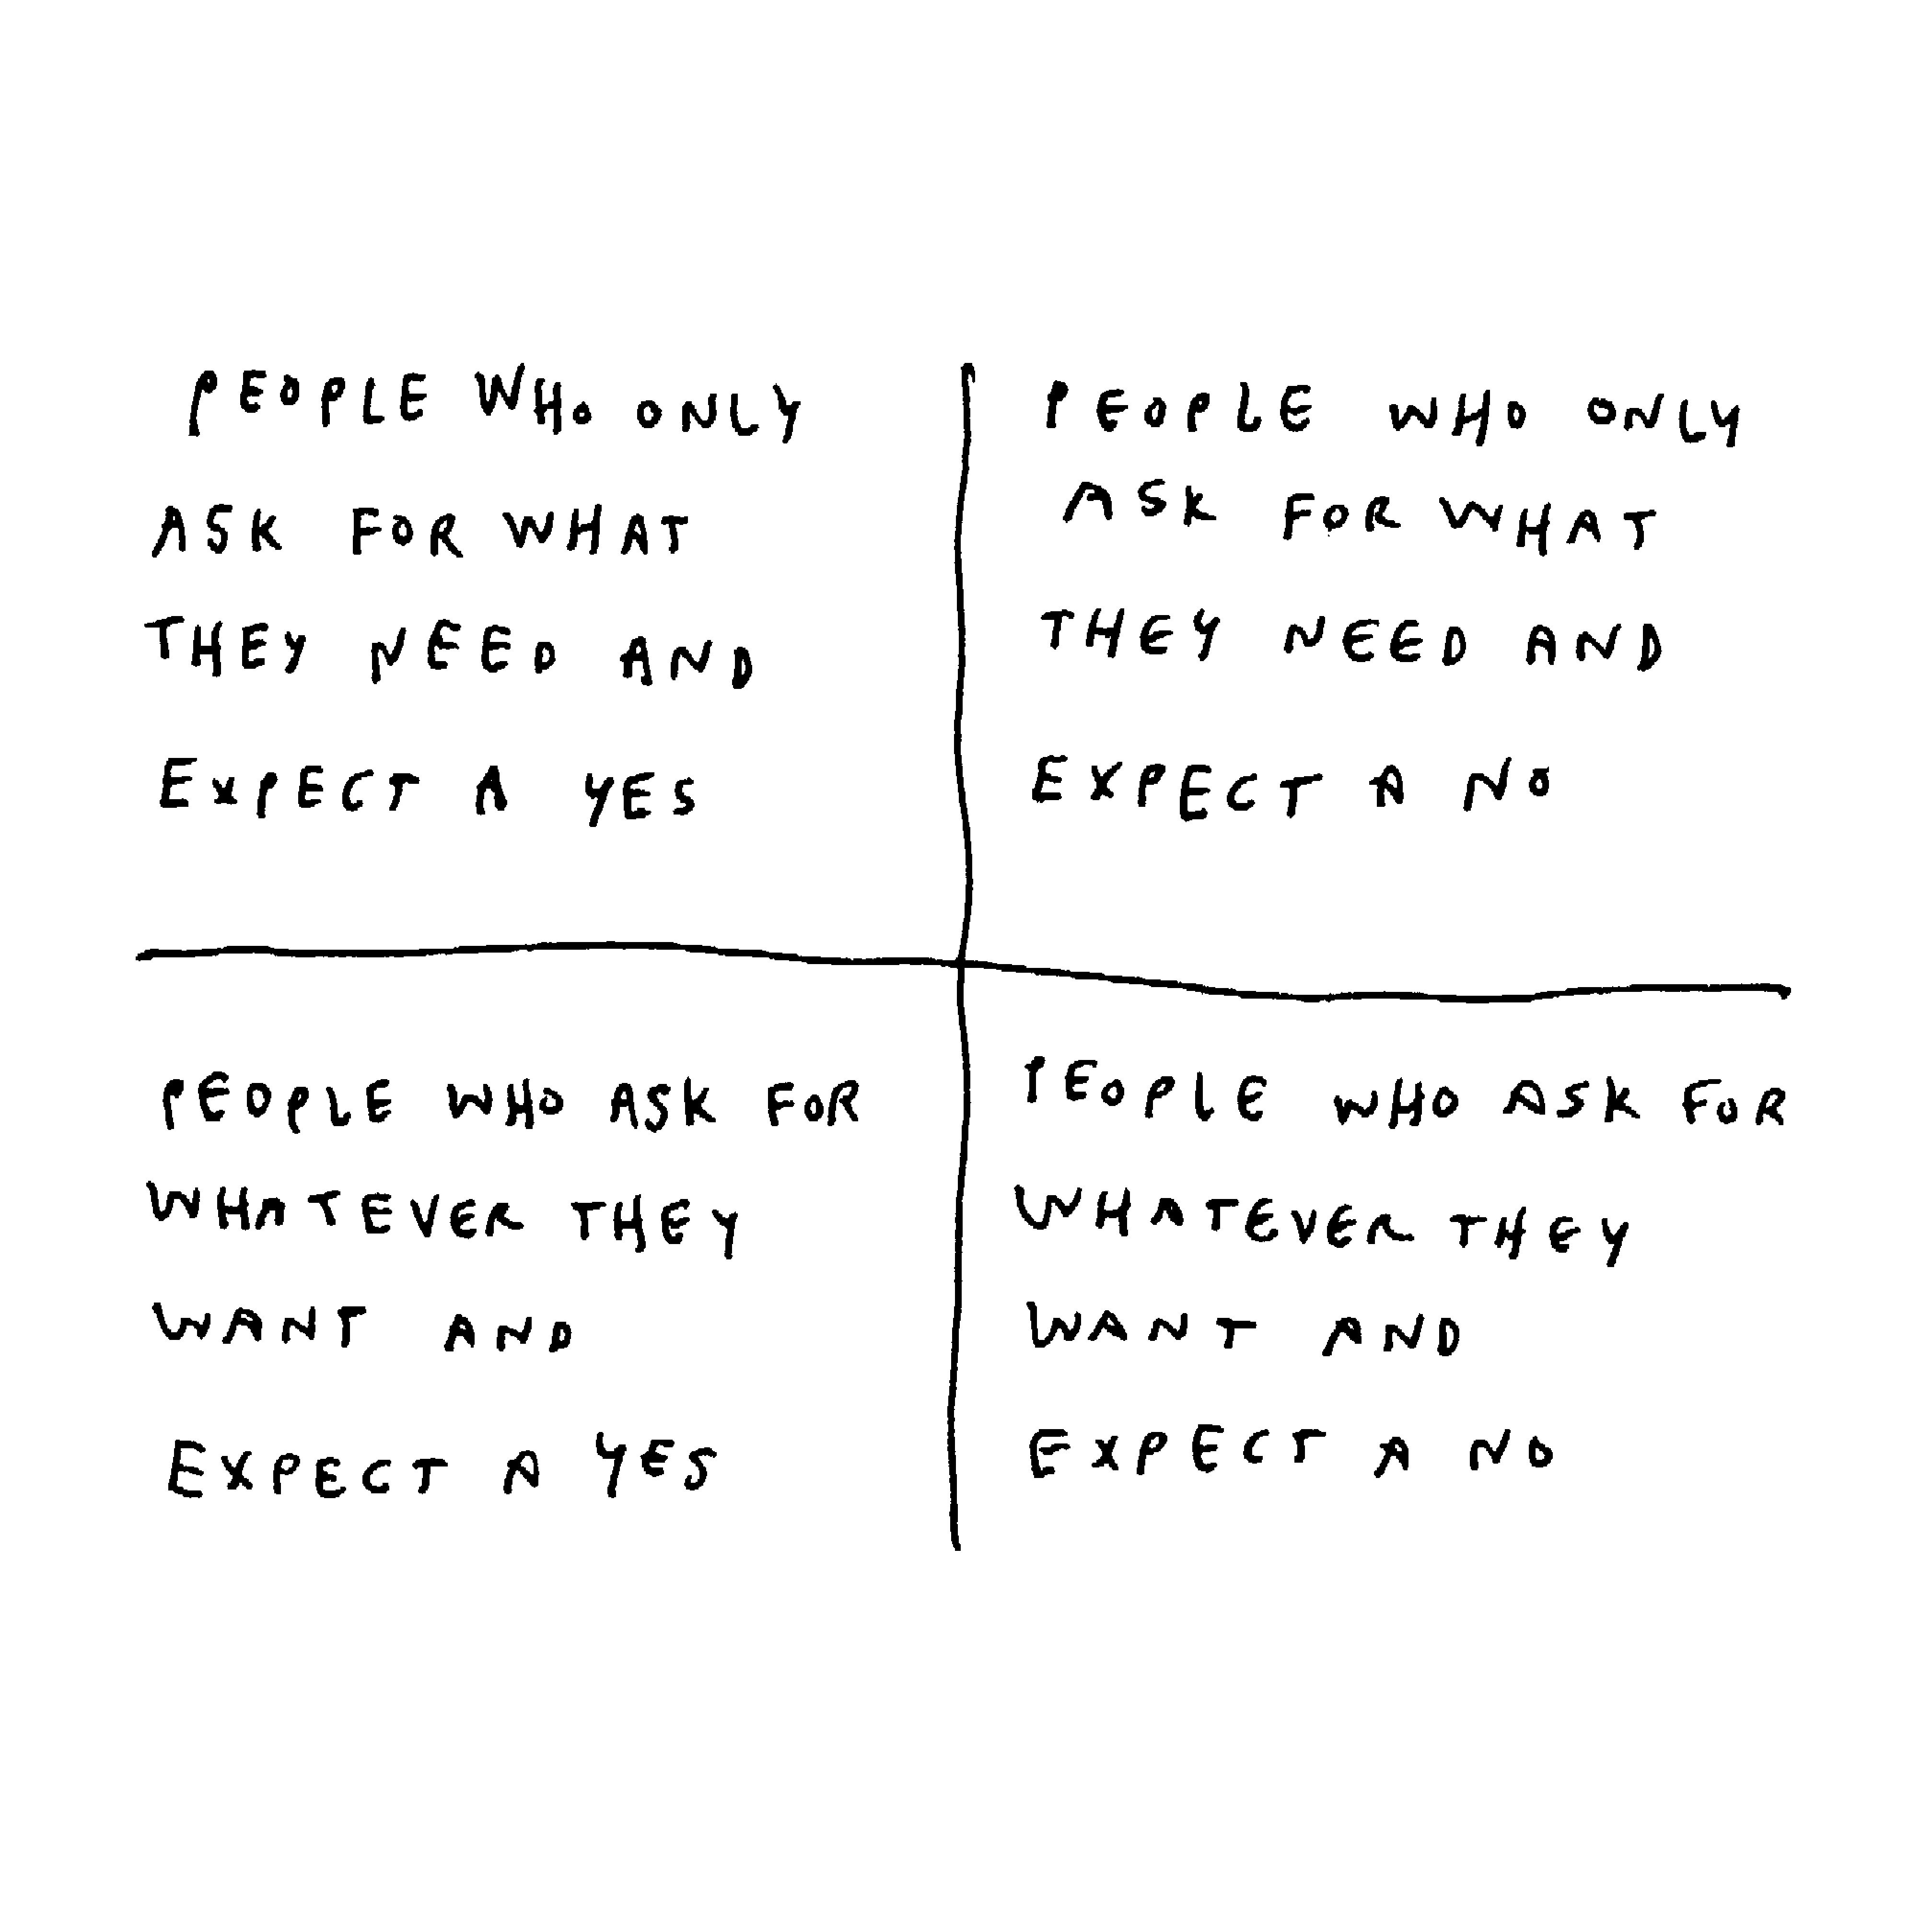 PEOPLE WHO ONLY
ASK FOR WHAT
THEY NEED AND
EXPECT A YES
PEOPLE WHO ONLY
ASK FOR WHAT
THEY NEED AND
EXPECT A NO
PEOPLE WHO ASK FOR
WHATEVER THEY
WANT AND
EXPECT A YES
PEOPLE WHO ASK FOR
WHATEVER THEY
WANT AND
EXPECT A NO